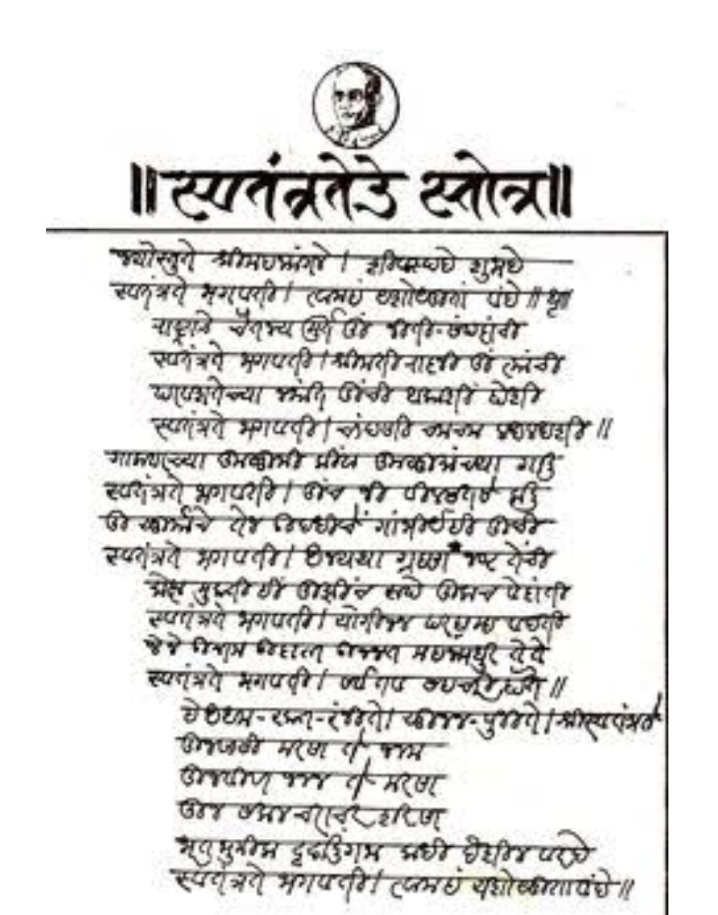 ॥स्वतंत्रतेचे स्तोत्र॥
जयोस्तुते श्रीमहन्मंगले । शिवास्पदे शुभदे
स्वतंत्रते भगवती । त्वामहं यशोयुतां वंदे ॥ ध्रु॥
राष्ट्राचे चैतन्य मूर्त तूं नीती-संपदांची
स्वतंत्रते भगवती । श्रीमती राज्ञी तूं त्यांची
परवशतेच्या नभांत तूंची आकाशीं होशी
स्वतंत्रते भगवती । चांदणी चमचम लखलखशी ॥
गालावरच्या कुसुमी किंवा कुसुमांच्या गाली
स्वतंत्रते भगवती । तूंच जी विलसतसे लाली
तूं सूर्याचे तेज उदधीचें गांभीर्यही तूंची
स्वतंत्रते भगवती । अन्यथा ग्रहण नष्ट तेंची
मोक्ष मुक्ती ही तुझींच रूपे तुलाच वेदांती
स्वतंत्रते भगवती । योगीजन परब्रह्म वदती
जे जे उत्तम उदात्त उन्नत महन्मधुर तें तें
स्वतंत्रते भगवती । सर्व तव सहचारी होते ॥
हे अधम-रक्त-रंजिते । सुजन-पुजिते । श्रीस्वतंत्रते
तुजसाठी मरण तें जनन
तुजवीण जनन तें मरण
तुज सकल चराचर शरण
दृढालिंगन कधी देशील वरदे
स्वतंत्रते भगवती । त्वामहं यशोयुतां वंदे ॥